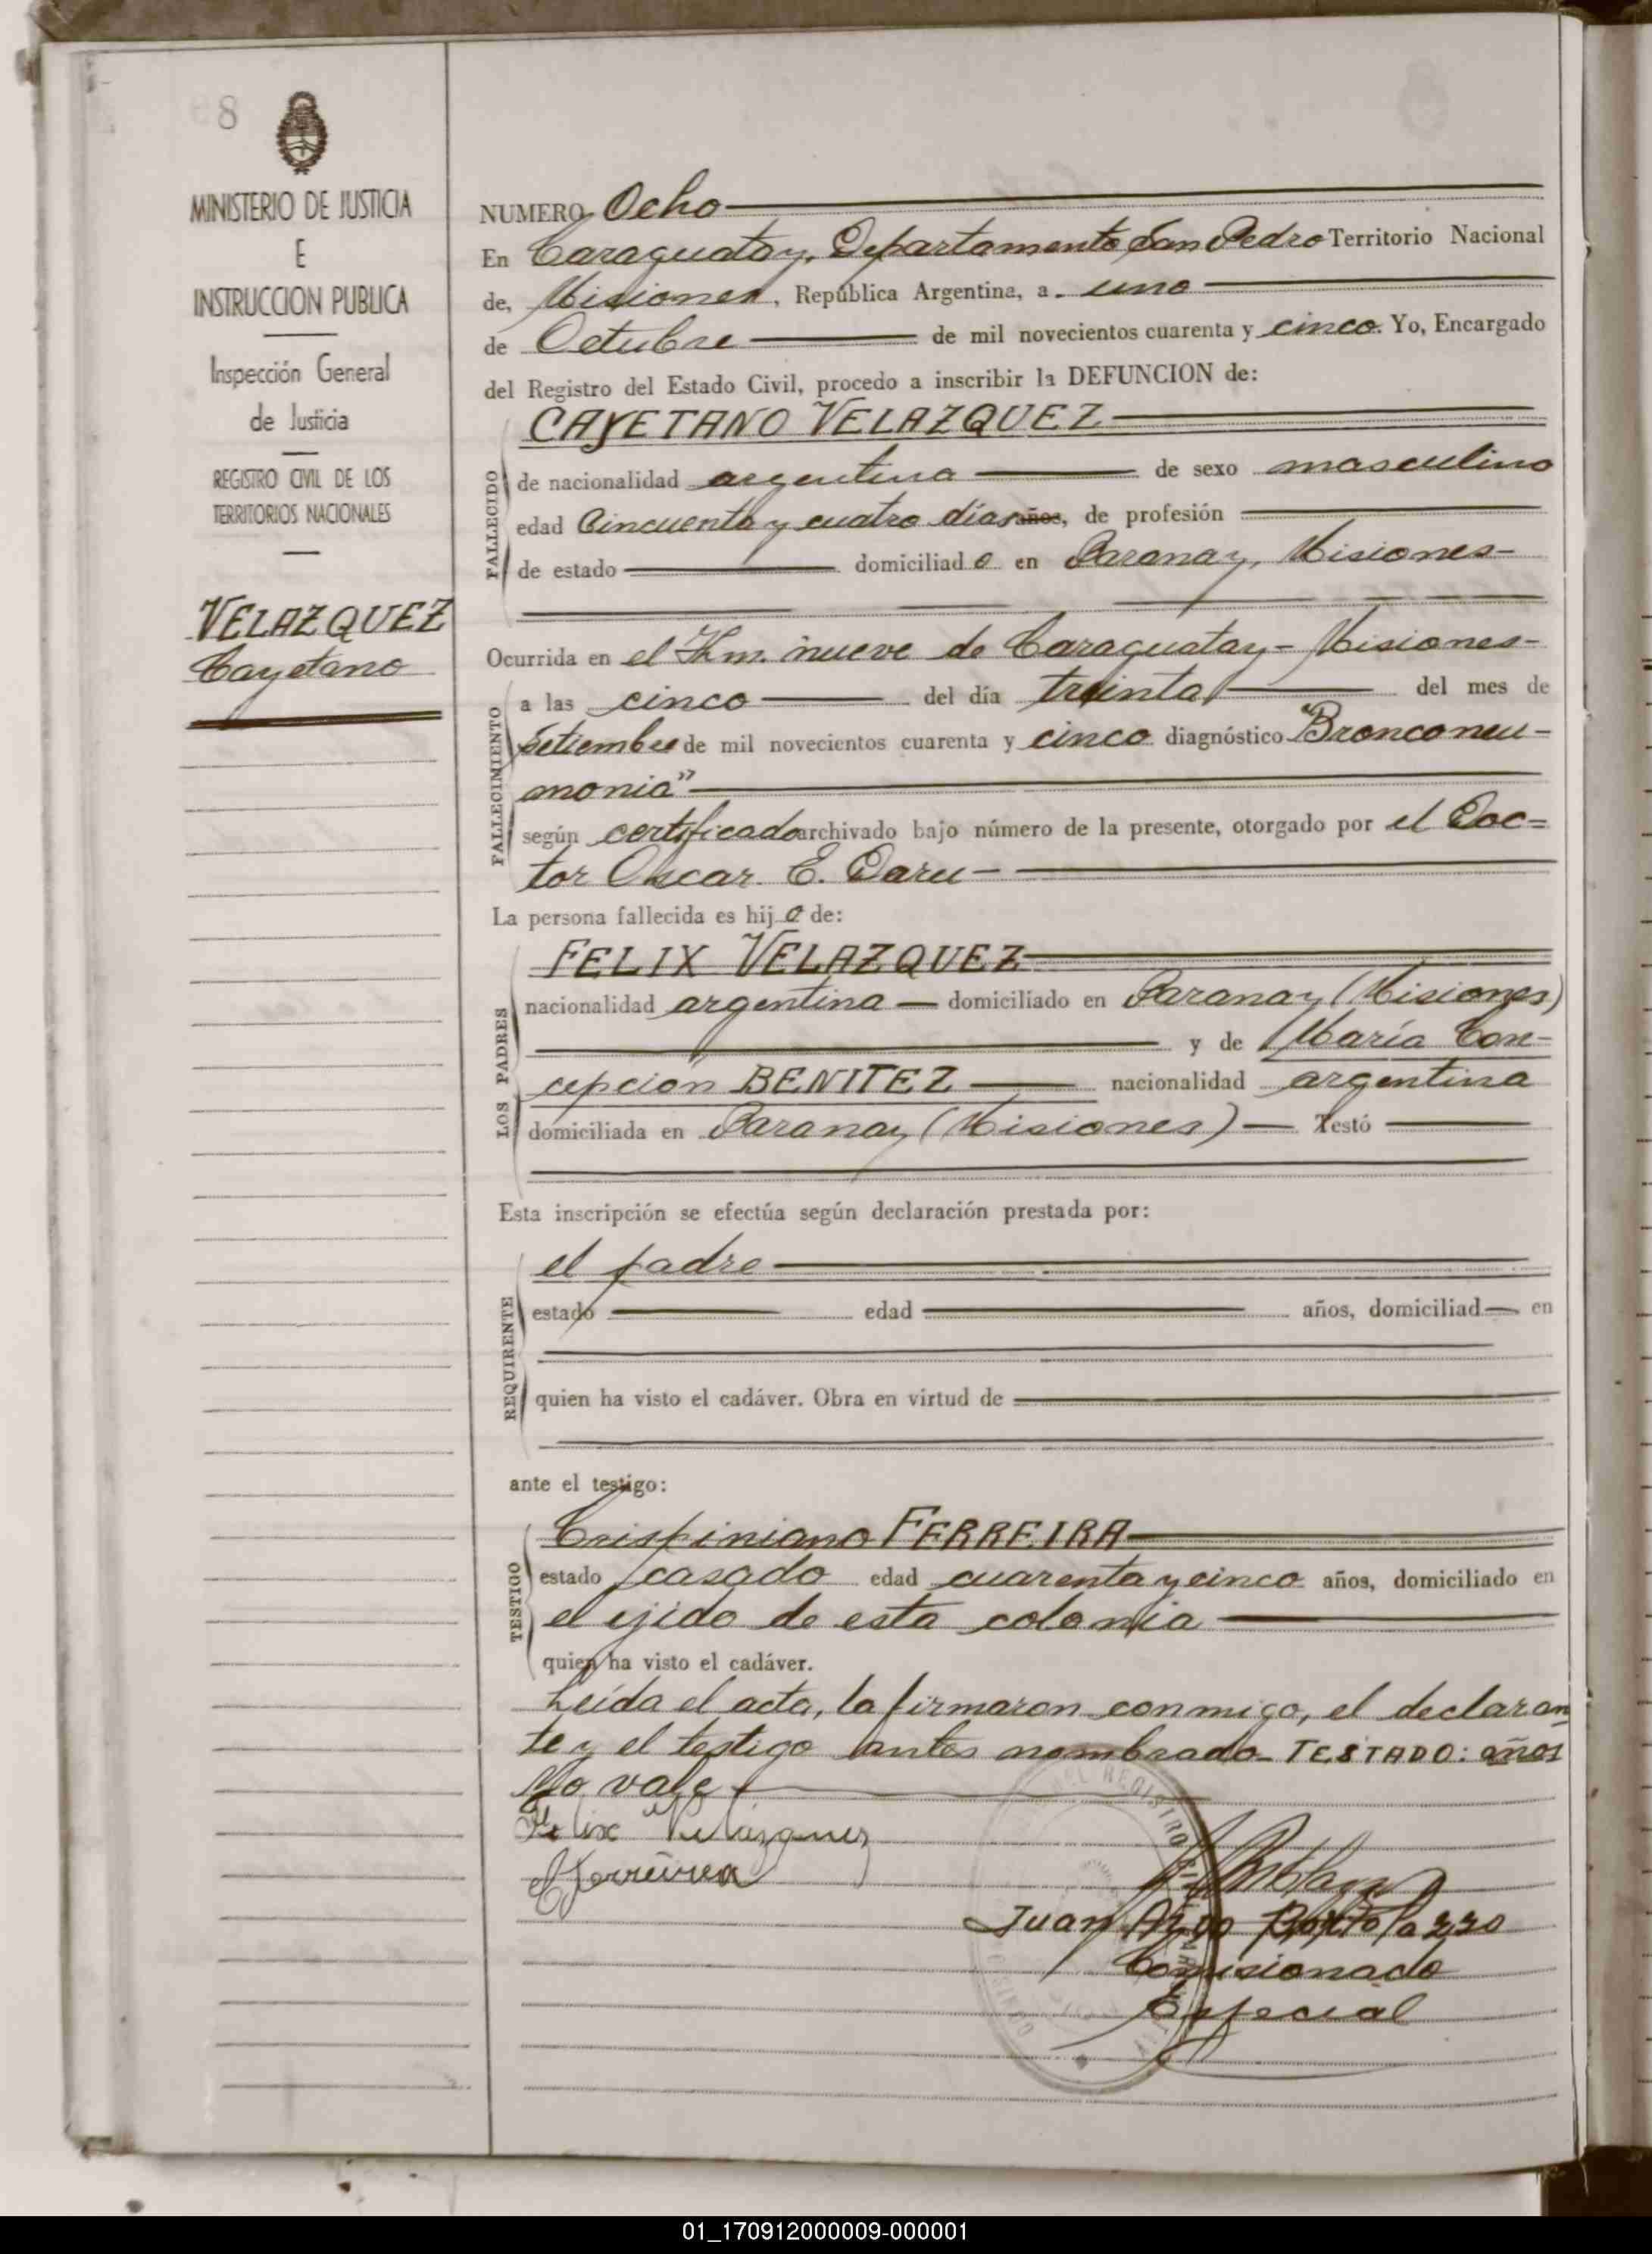 8
MINISTERIO DE JUSTICIA
E
INSTRUCCION PUBLICA
Inspección General
de Justicia
REGISTRO CIVIL DE LOS
TERRITORIOS NACIONALES
VELAZQUEZ
Cayetano
NUMERO Ocho
En Caraguatay, Departamento San Pedro Territorio Nacional
de, Misiones, República Argentina, a uno
de Octubre de mil novecientos cuarenta y cinco. Yo, Encargado
del Registro del Estado Civil, procedo a inscribir la DEFUNCION de:
CAYETANO VELAZQUEZ
FALLECIDO
de nacionalidad argentina de sexo masculino
edad Cincuenta y cuatro días años, de profesión
de estado domiciliado en Paranay, Misiones-
Ocurrida en el Km. nueve de Caraguatay- Misiones-
FALLECIMIENTO
a las cinco del día treinta del mes de
setiembre de mil novecientos cuarenta y cinco diagnóstico "Bronconeu-
monia"
según certificado archivado bajo número de la presente, otorgado por el Doc=
tor Oscar E. Daru-
La persona fallecida es hijo de:
LOS PADRES
FELIX VELAZQUEZ
nacionalidad argentina domiciliado en Paranay (Misiones)
y de María Con-
cepción BENITEZ nacionalidad argentina
domiciliada en Paranay (Misiones) Testó
Esta inscripción se efectúa según declaración prestada por:
REQUIRENTE
el padre
estado edad años, domiciliad en
quien ha visto el cadáver. Obra en virtud de
ante el testigo:
TESTIGO
Crispiniano FERREIRA
estado casado edad cuarenta y cinco años, domiciliado en
el ejido de esta colonia
quien ha visto el cadáver.
Leída el acta, la firmaron conmigo, el declaran
te y el testigo antes nombrado- TESTADO: años
No vale
Felix Velazquez
CFerreira
Juan Bortolazzo
Comisionado
Especial
DEL REGISTRO
01_170912000009-000001